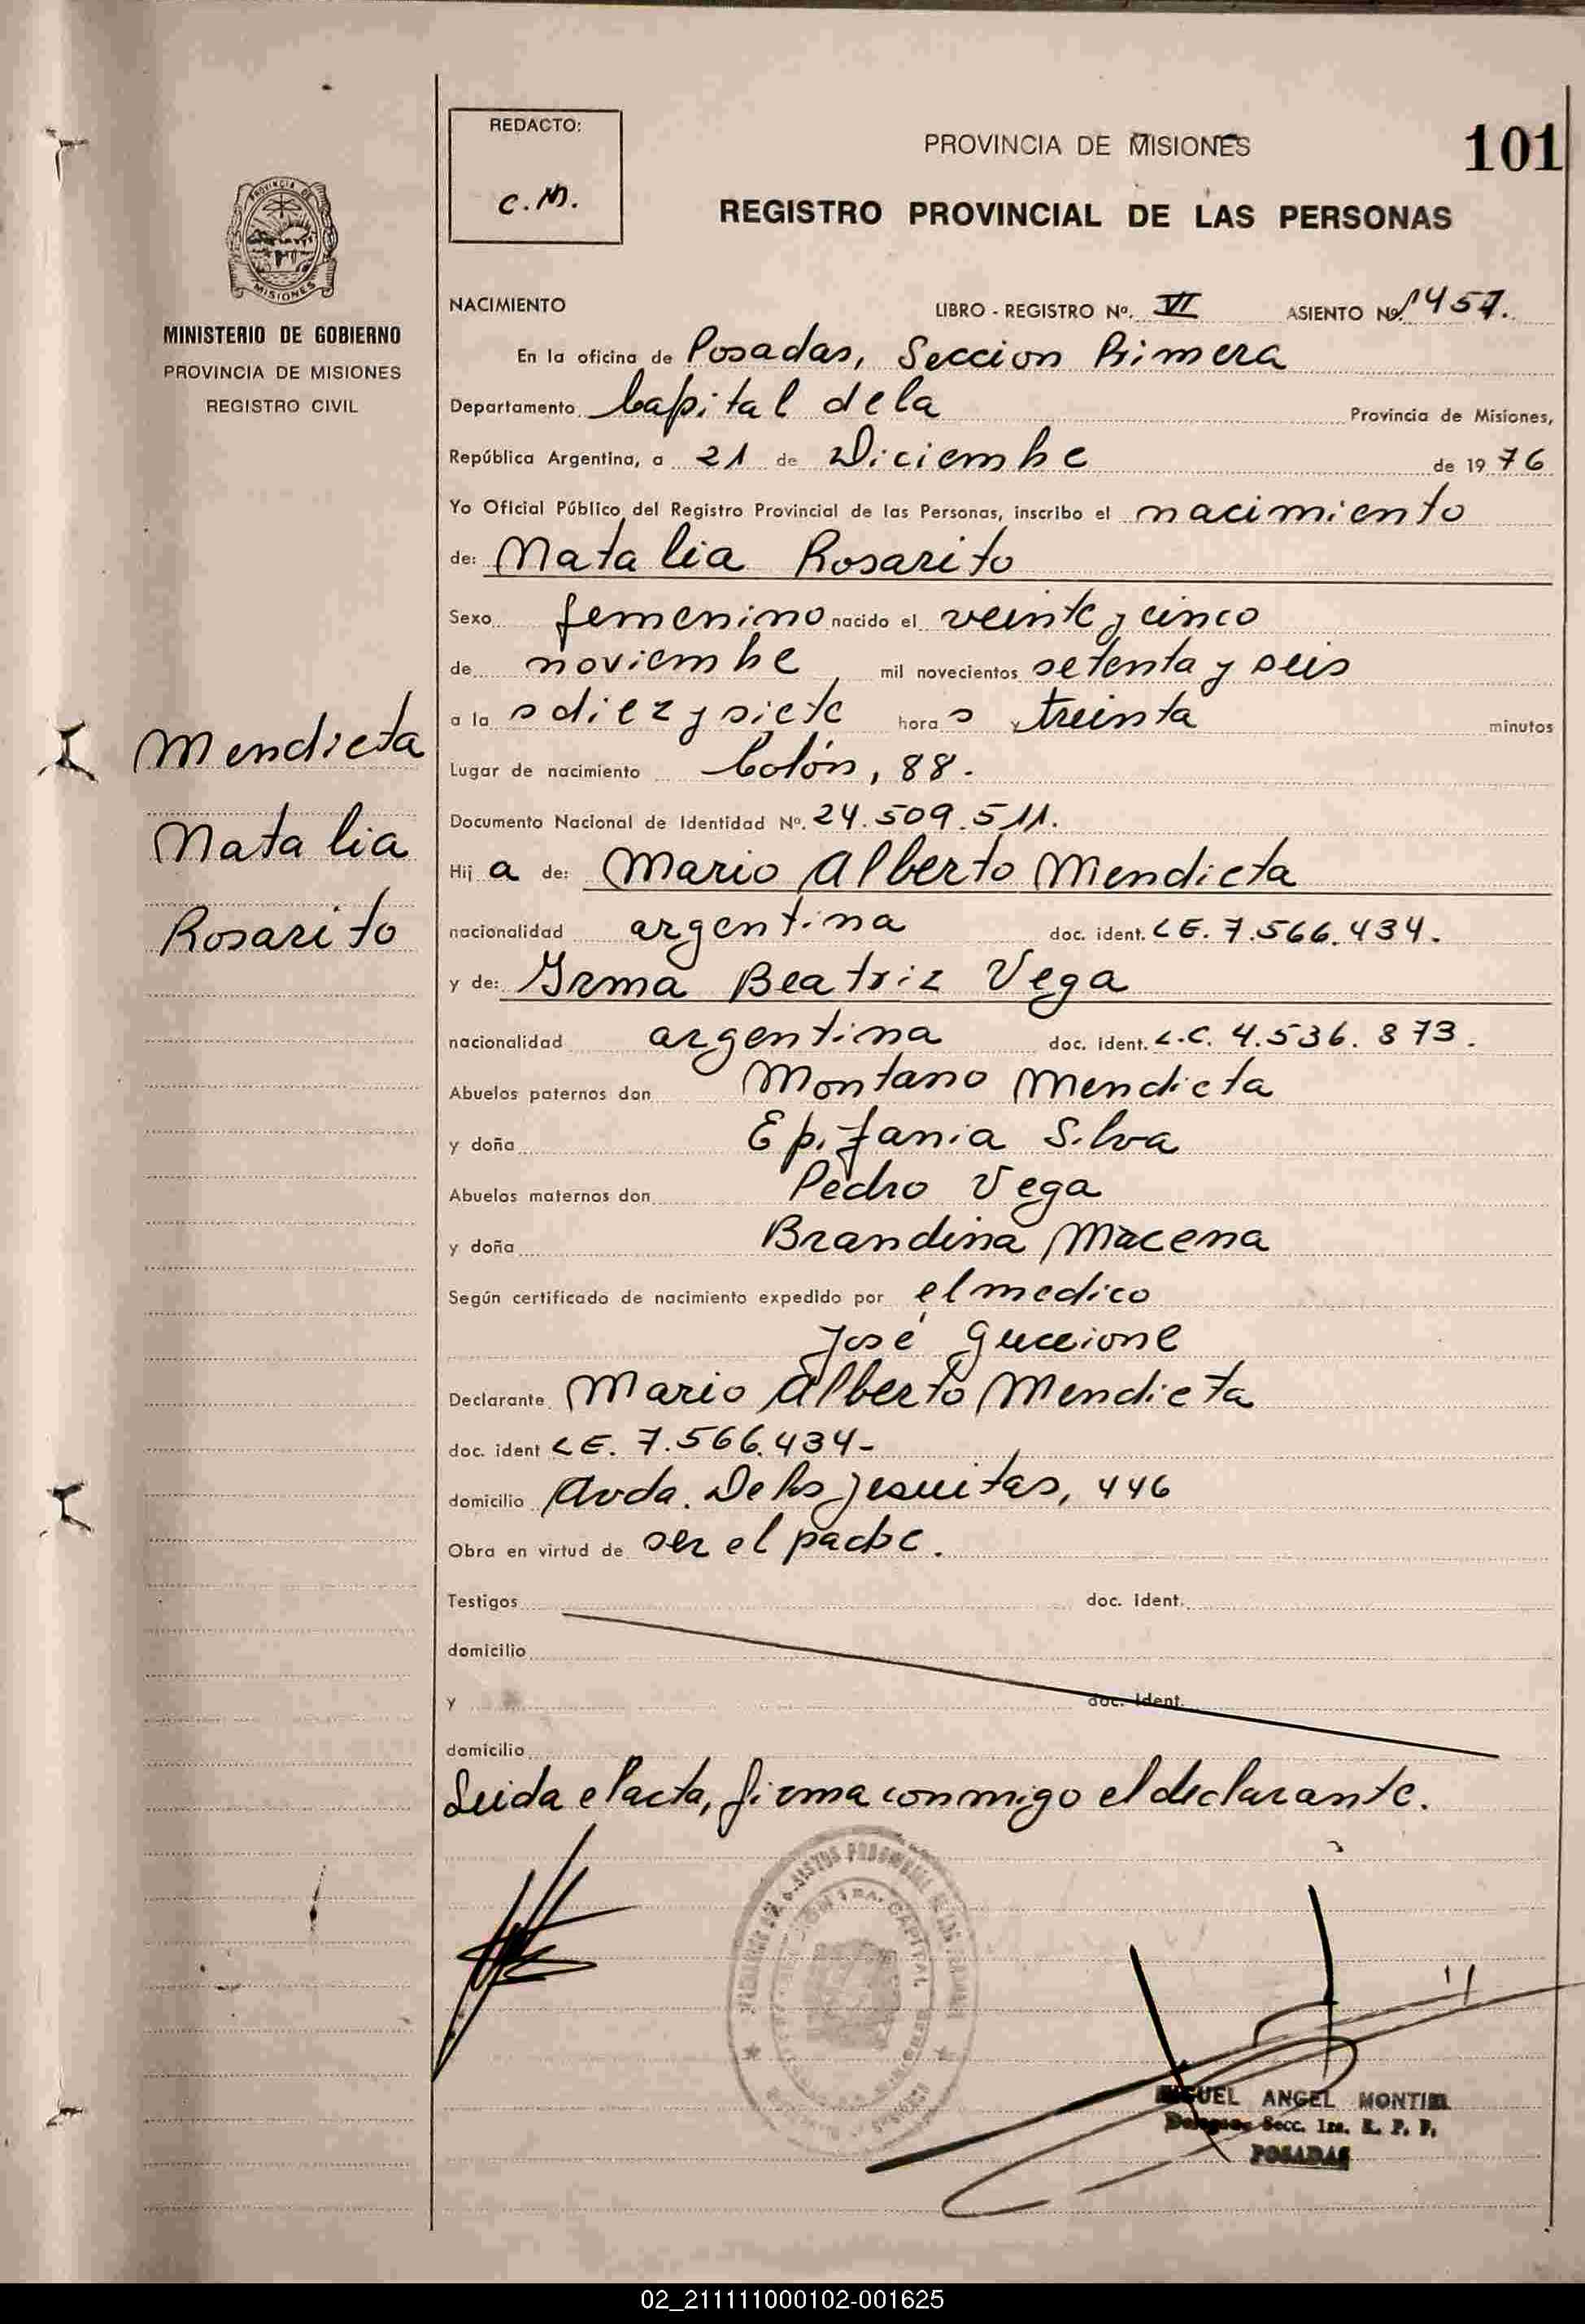 REDACTO:
C.M.
PROVINCIA DE MISIONES
101
REGISTRO PROVINCIAL DE LAS PERSONAS
PROVINCIA DE MISIONES
MINISTERIO DE GOBIERNO
PROVINCIA DE MISIONES
REGISTRO CIVIL
Mendieta
Natalia
Rosarito
NACIMIENTO LIBRO - REGISTRO Nº. VI ASIENTO Nº 457.
En la oficina de Posadas, Seccion Primera
Departamento Capital de la Provincia de Misiones,
República Argentina, a 21 de Diciembre de 1976
Yo Oficial Público del Registro Provincial de las Personas, inscribo el nacimiento
de: Natalia Rosarito
Sexo femenino nacido el veinte y cinco
de noviembre mil novecientos setenta y seis
a la s diez y siete hora s y treinta minutos
Lugar de nacimiento Colón, 88.
Documento Nacional de Identidad Nº. 24.509.511.
Hij a de: Mario Alberto Mendieta
nacionalidad argentina doc. ident. LE. 7.566.434.
y de: Irma Beatriz Vega
nacionalidad argentina doc. ident. L.C. 4.536.873.
Abuelos paternos don Montano Mendieta
y doña Epifania Silva
Abuelos maternos don Pedro Vega
y doña Brandina Macena
Según certificado de nacimiento expedido por el medico
José Guccione
Declarante Mario Alberto Mendieta
doc. ident LE. 7.566.434-
domicilio Avda. De los Jesuitas, 446
Obra en virtud de ser el padre.
Testigos doc. ident.
domicilio
y doc. ident.
domicilio
Leida el acta, firma conmigo el declarante.
CAPITAL
MIGUEL ANGEL MONTIEL
Secc. 1ra. R. P. P.
POSADAS
02_211111000102-001625